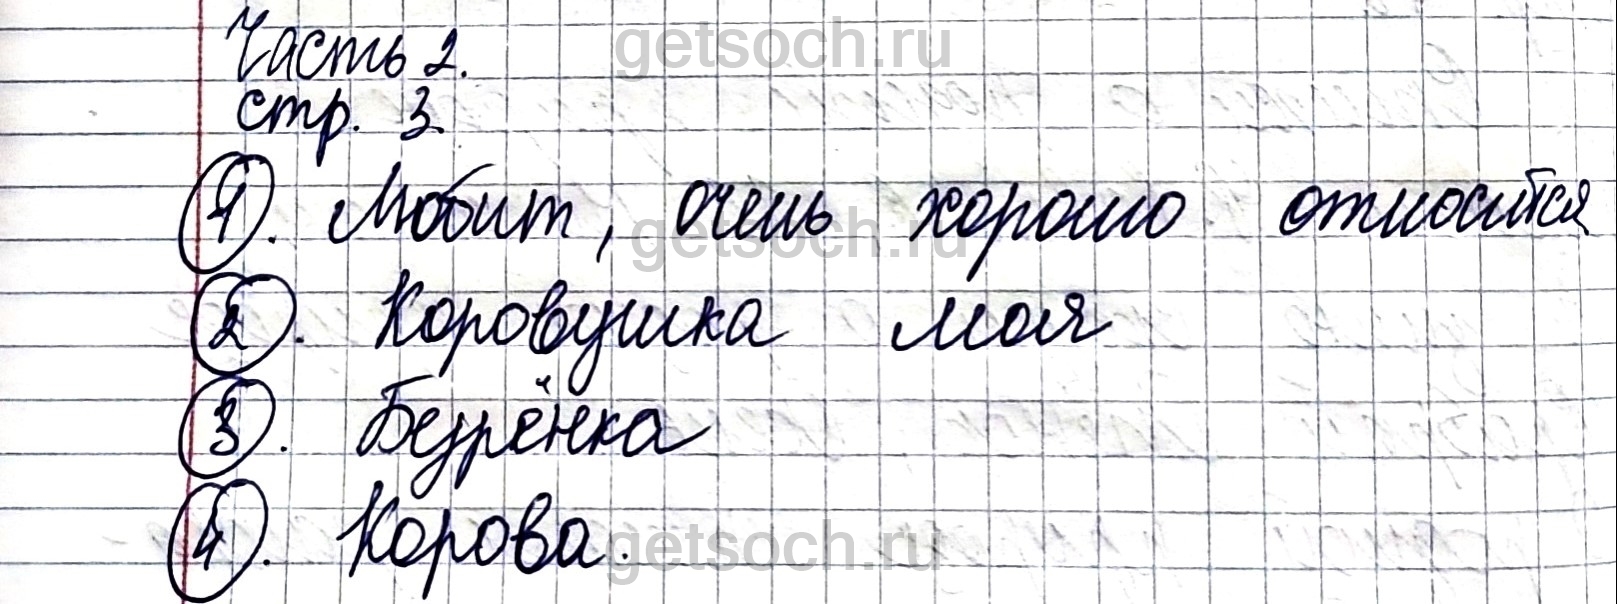 getsoch.ru
Часть 2.
стр. 3.
1. Любит, очень хорошо относится
getsoch.ru
2. Коровушка моя
3. Бурёнка
4. Корова.
getsoch.ru